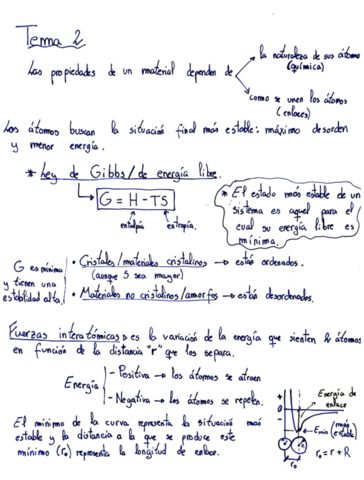 Tema 2
Las propiedades de un material dependen de
la naturaleza de sus átomos
(química)
como se unen los átomos
(enlaces)
Los átomos buscan la situación final más estable: máximo desorden
y menor energía.
* Ley de Gibbs/de energía libre.
G = H - TS
entalpía
entropía
* El estado más estable de un
sistema es aquel para el
cual su energía libre es
mínima.
G es mínima
y tienen una
estabilidad alta.
• Cristales/materiales cristalinos → están ordenados.
(aunque S sea mayor)
• Materiales no cristalinos/amorfos → están desordenados.
Fuerzas interatómicas → es la variación de la energía que sienten 2 átomos
en función de la distancia "r" que los separa.
Energía
- Positiva → los átomos se atraen
- Negativa → los átomos se repelen.
El mínimo de la curva representa la situación más
estable y la distancia a la que se produce este
mínimo (r₀) representa la longitud de enlace.
+
0
-
Energía de
enlace
Emin (más
estable)
r₀
r₀ = r + R